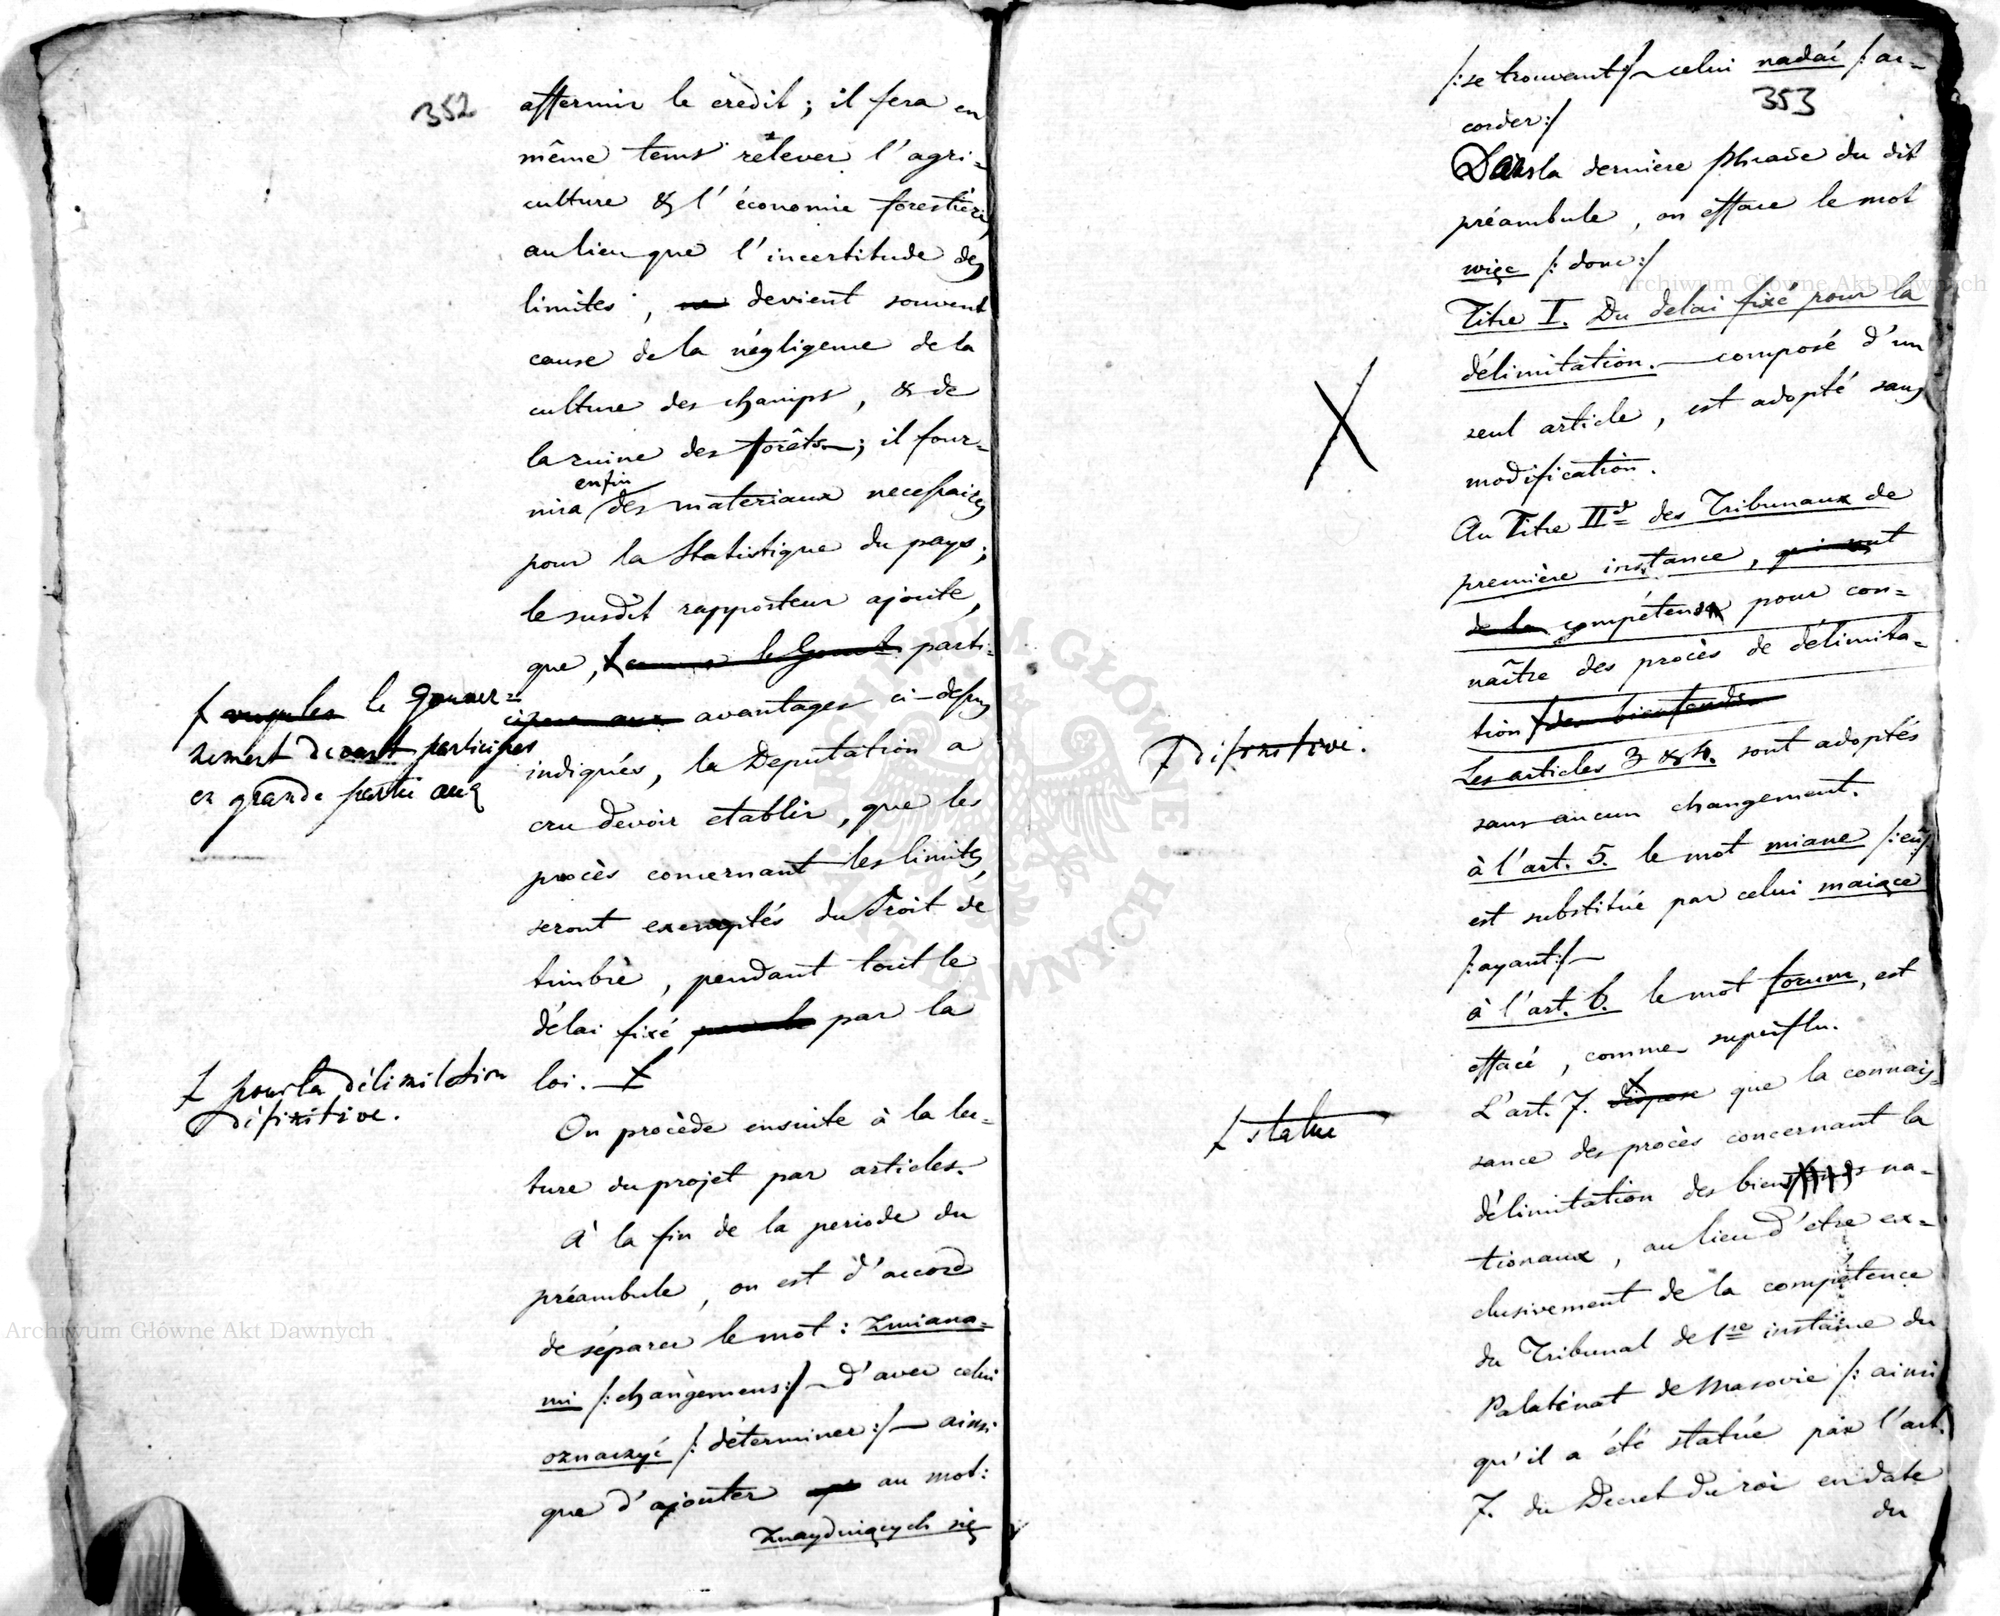 352
affermir le crèdit ; il fera en
même tems relever l'agri-
culture & l'économie forestière,
au lieu que l'incertitude des
limites, devient souvent
cause de la négligence de la
culture des champs, & de
la ruine des forêts ; il four-
enfin
nira des materiaux necessaires
pour la Statistique du pays ;
le susdit rapporteur ajoute,
que, comme le Gouvt. parti-
ciper aux avantages ci-dessus
indiqués, la Deputation a
cru devoir etablir, que les
procès concernant les limites,
seront exemptés du droit de
timbre, pendant tout le
délai fixé par la
loi.
On procède ensuite à la lec-
ture du projet par articles.
À la fin de la periode du
préambule, on est d'accord
de séparer le mot : zmiana-
mi /: changèmens :/ d'avec celui
oznaczyć /: déterminer :/ ainsi
que d'ajouter au mot :
znayduiących się
le Gouver=
nement devant participer
en grande partie aux
pour la délimitation
définitive.
/: se trouvant :/ celui nadać /: ac-
353
corder :/
Dans la dernière phrase du dit
préambule, on efface le mot
więc /: donc :/
Titre I. Du delai fixé pour la
délimitation. composé d'un
seul article, est adopté sans
modification.
Au Titre IId des Tribunaux de
première instance, qui sont
de la compétens pour con-
naître des procès de délimita-
tion
Les articles 3 & 4. sont adoptés
sans aucun changement.
à l'art. 5. le mot miane /: eus
est substitué par celui maiące
/: ayant :/
à l'art. 6. le mot forum, est
effacé, comme superflu.
L'art. 7. dispose que la connais-
sance des procès concernant la
délimitation des biens na-
tionaux, au lieu d'etre ex-
clusivement de la compétence
du Tribunal de 1re instance du
Palatinat de Masovie /: ainsi
qu'il a été statué par l'art.
7. du Decret du roi en date
du
définitive.
statue
Archiwum Główne Akt Dawnych
Archiwum Główne Akt Dawnych
ARCHIWUM GŁÓWNE
AKT DAWNYCH